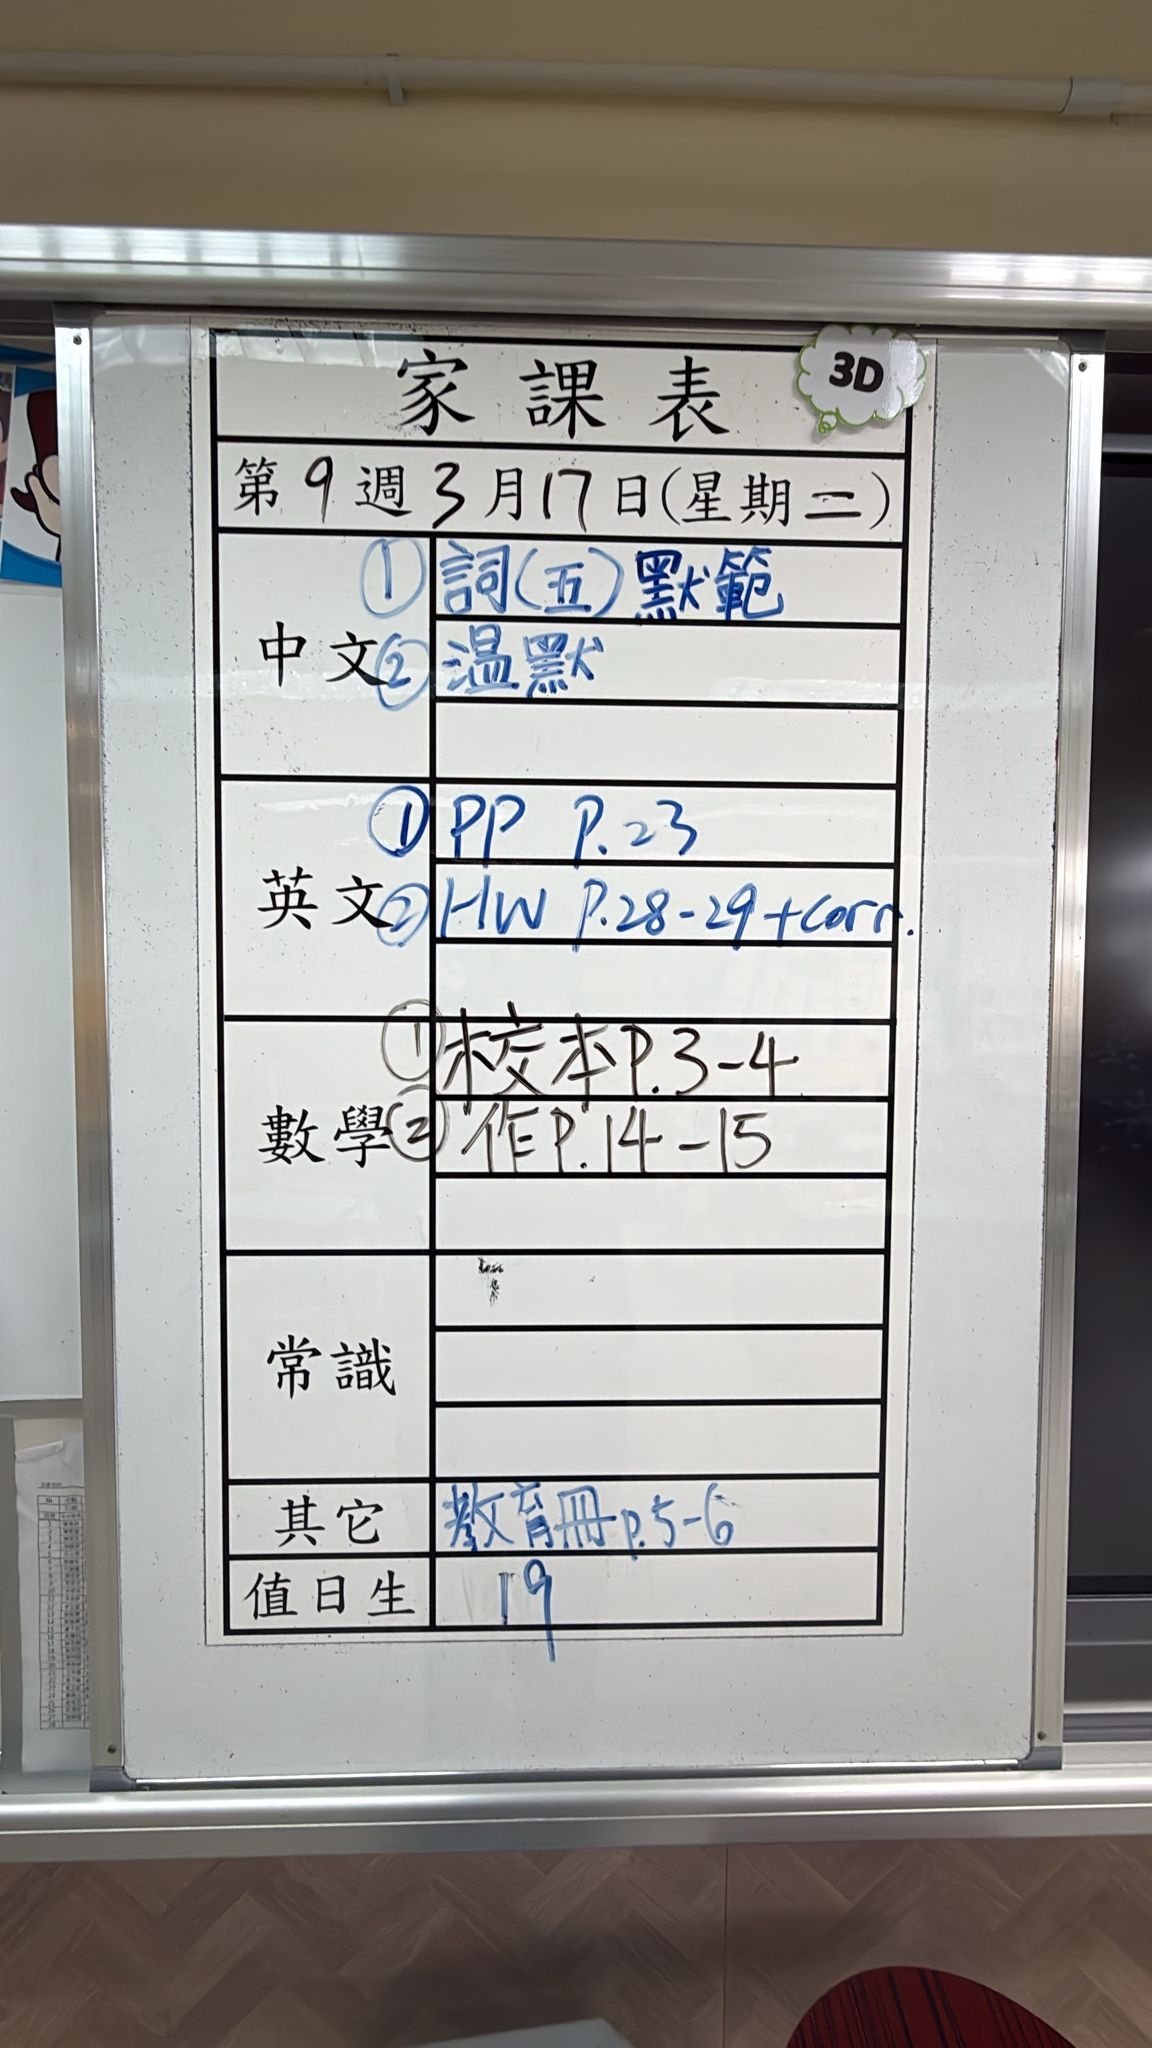 家課表
3D
第9週3月17日(星期二)
中文
① 詞(五)默範
② 溫默
英文
① PP P.23
② HW P.28-29+corr.
數學
① 校本P.3-4
② 作P.14-15
常識
其它 教育冊p.5-6
值日生 19